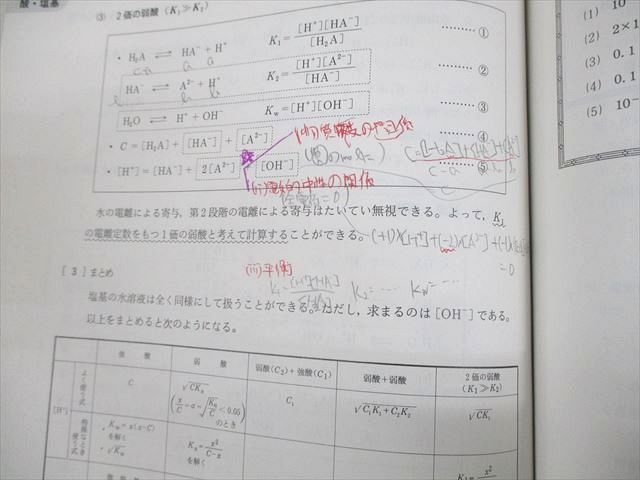 酸・塩基
③ 2価の弱酸 (K₁≫K₂)
・H₂A ⇄ HA⁻ + H⁺ K₁ = [H⁺][HA⁻] / [H₂A] ①
HA⁻ ⇄ A²⁻ + H⁺ K₂ = [H⁺][A²⁻] / [HA⁻] ②
H₂O ⇄ H⁺ + OH⁻ Kw = [H⁺][OH⁻] ③
・C = [H₂A] + [HA⁻] + [A²⁻] ④
・[H⁺] = [HA⁻] + 2[A²⁻] [OH⁻] ⑤
の関係
(ii)電気的中性の関係
水の電離による寄与，第2段階の電離による寄与はたいてい無視できる。よって，K₁
の電離定数をもつ1価の弱酸と考えて計算することができる。
(+1)×[H⁺]+(-2)×[A²⁻]+(-1)×
=0
(iii)平衡
K₁= [H⁺][HA] K₂=… Kw=…
[3] まとめ
塩基の水溶液は全く同様にして扱うことができる。ただし，求まるのは [OH⁻] である。
以上をまとめると次のようになる。
強酸 弱酸 弱酸(C₂)+強酸(C₁) 弱酸+弱酸 2価の弱酸 (K₁≫K₂)
[H⁺] よく使う式 C √CKa C₁ √C₁K₁+C₂K₂ √CK₁
(x/C = α = √Ka/C < 0.05)
のとき
・Kw = x(x−C)
を解く
・√Kw
Ka = x²/C−x
を解く
(1) 10
(2) 2×1
(3) 0.1
(4) 0.1
(5) 10⁻